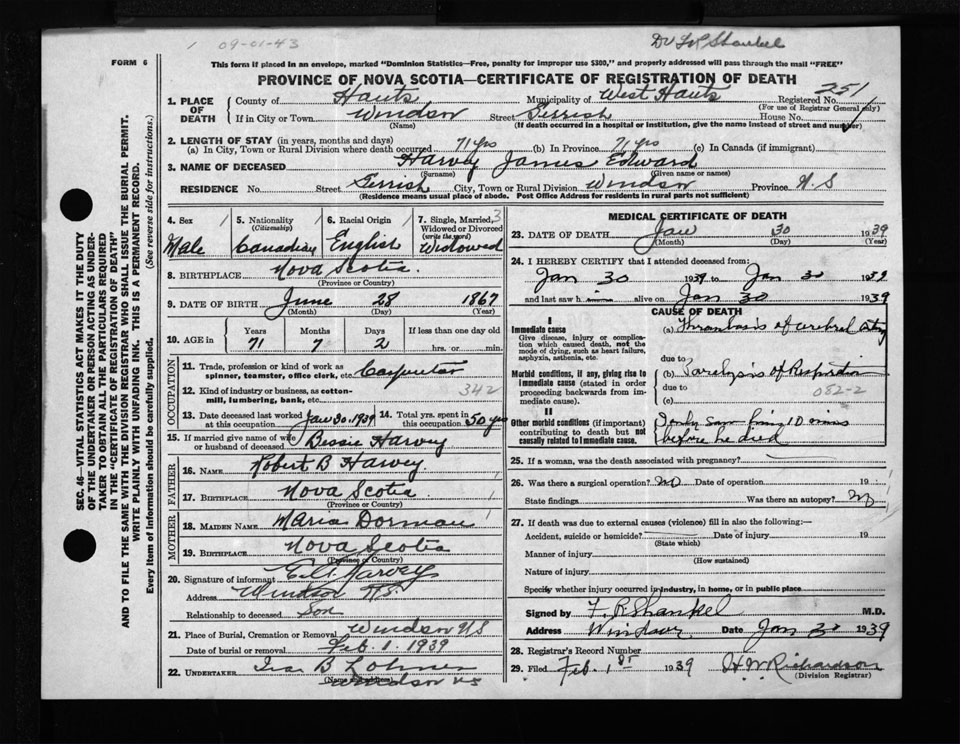 1 09-01-43
Dr F R Shankel
FORM 6
This form if placed in an envelope, marked "Dominion Statistics—Free, penalty for improper use $300," and properly addressed will pass through the mail "FREE"
PROVINCE OF NOVA SCOTIA—CERTIFICATE OF REGISTRATION OF DEATH
SEC. 46—VITAL STATISTICS ACT MAKES IT THE DUTY
OF THE UNDERTAKER OR PERSON ACTING AS UNDER-
TAKER TO OBTAIN ALL THE PARTICULARS REQUIRED
IN THE "CERTIFICATE OF REGISTRATION OF DEATH"
AND TO FILE THE SAME WITH THE DIVISION REGISTRAR WHO SHALL ISSUE THE BURIAL PERMIT.
WRITE PLAINLY WITH UNFADING INK. THIS IS A PERMANENT RECORD.
Every item of information should be carefully supplied. (See reverse side for instructions.)
1. PLACE OF DEATH County of Hants Municipality of West Hants Registered No. 251
(For use of Registrar General only)
If in City or Town Windsor Street Gerrish House No.
(Name) (If death occurred in a hospital or institution, give the name instead of street and number)
2. LENGTH OF STAY (in years, months and days)
(a) In City, Town or Rural Division where death occurred 71 yrs (b) In Province 71 yrs (c) In Canada (if immigrant)
3. NAME OF DECEASED Harvey James Edward
(Surname) (Given name or names)
RESIDENCE No. Street Gerrish City, Town or Rural Division Windsor Province N.S
(Residence means usual place of abode. Post Office Address for residents in rural parts not sufficient)
4. Sex 1 Male
5. Nationality (Citizenship) 1 Canadian
6. Racial Origin 1 English
7. Single, Married, Widowed or Divorced (write the word) 3 Widowed
8. BIRTHPLACE Nova Scotia 1
(Province or Country)
9. DATE OF BIRTH June 28 1867
(Month) (Day) (Year)
10. AGE in Years 71 Months 7 Days 2 If less than one day old hrs. or min.
OCCUPATION
11. Trade, profession or kind of work as spinner, teamster, office clerk, etc. Carpenter
12. Kind of industry or business, as cotton-mill, lumbering, bank, etc. 342
13. Date deceased last worked at this occupation Jan 30, 1939 14. Total yrs. spent in this occupation 50 yrs
15. If married give name of wife or husband of deceased Bessie Harvey
FATHER
16. NAME Robert B Harvey
17. BIRTHPLACE Nova Scotia 1
(Province or Country)
MOTHER
18. MAIDEN NAME Maria Dorman 1
19. BIRTHPLACE Nova Scotia
(Province or Country)
20. Signature of informant Harvey
Address Windsor N.S.
Relationship to deceased Son
21. Place of Burial, Cremation or Removal Windsor N/S
Date of burial or removal Feb. 1. 1939
22. UNDERTAKER Ira B Lohnes
(Name and address) Windsor NS
MEDICAL CERTIFICATE OF DEATH
23. DATE OF DEATH Jan 30 1939
(Month) (Day) (Year)
24. I HEREBY CERTIFY that I attended deceased from:
Jan 30 1939 to Jan 30 1939
and last saw him alive on Jan 30 1939
CAUSE OF DEATH
I
Immediate cause
Give disease, injury or complication which caused death, not the mode of dying, such as heart failure, asphyxia, asthenia, etc.
(a) Thrombosis of cerebral artry
due to
Morbid conditions, if any, giving rise to immediate cause (stated in order proceeding backwards from immediate cause).
(b) Paralysis of Respiration
due to 082-2
(c)
II
Other morbid conditions (if important) contributing to death but not causally related to immediate cause.
I only saw him 10 mins
before he died
25. If a woman, was the death associated with pregnancy?
26. Was there a surgical operation? no Date of operation 19
State findings Was there an autopsy? no
27. If death was due to external causes (violence) fill in also the following:—
Accident, suicide or homicide? Date of injury 19
(State which)
Manner of injury
(How sustained)
Nature of injury
Specify whether injury occurred in industry, in home, or in public place
Signed by F. R. Shankel M.D.
Address Windsor Date Jan 30 1939
28. Registrar's Record Number
29. Filed Feb. 1st 1939 H. W. Richardson
(Division Registrar)